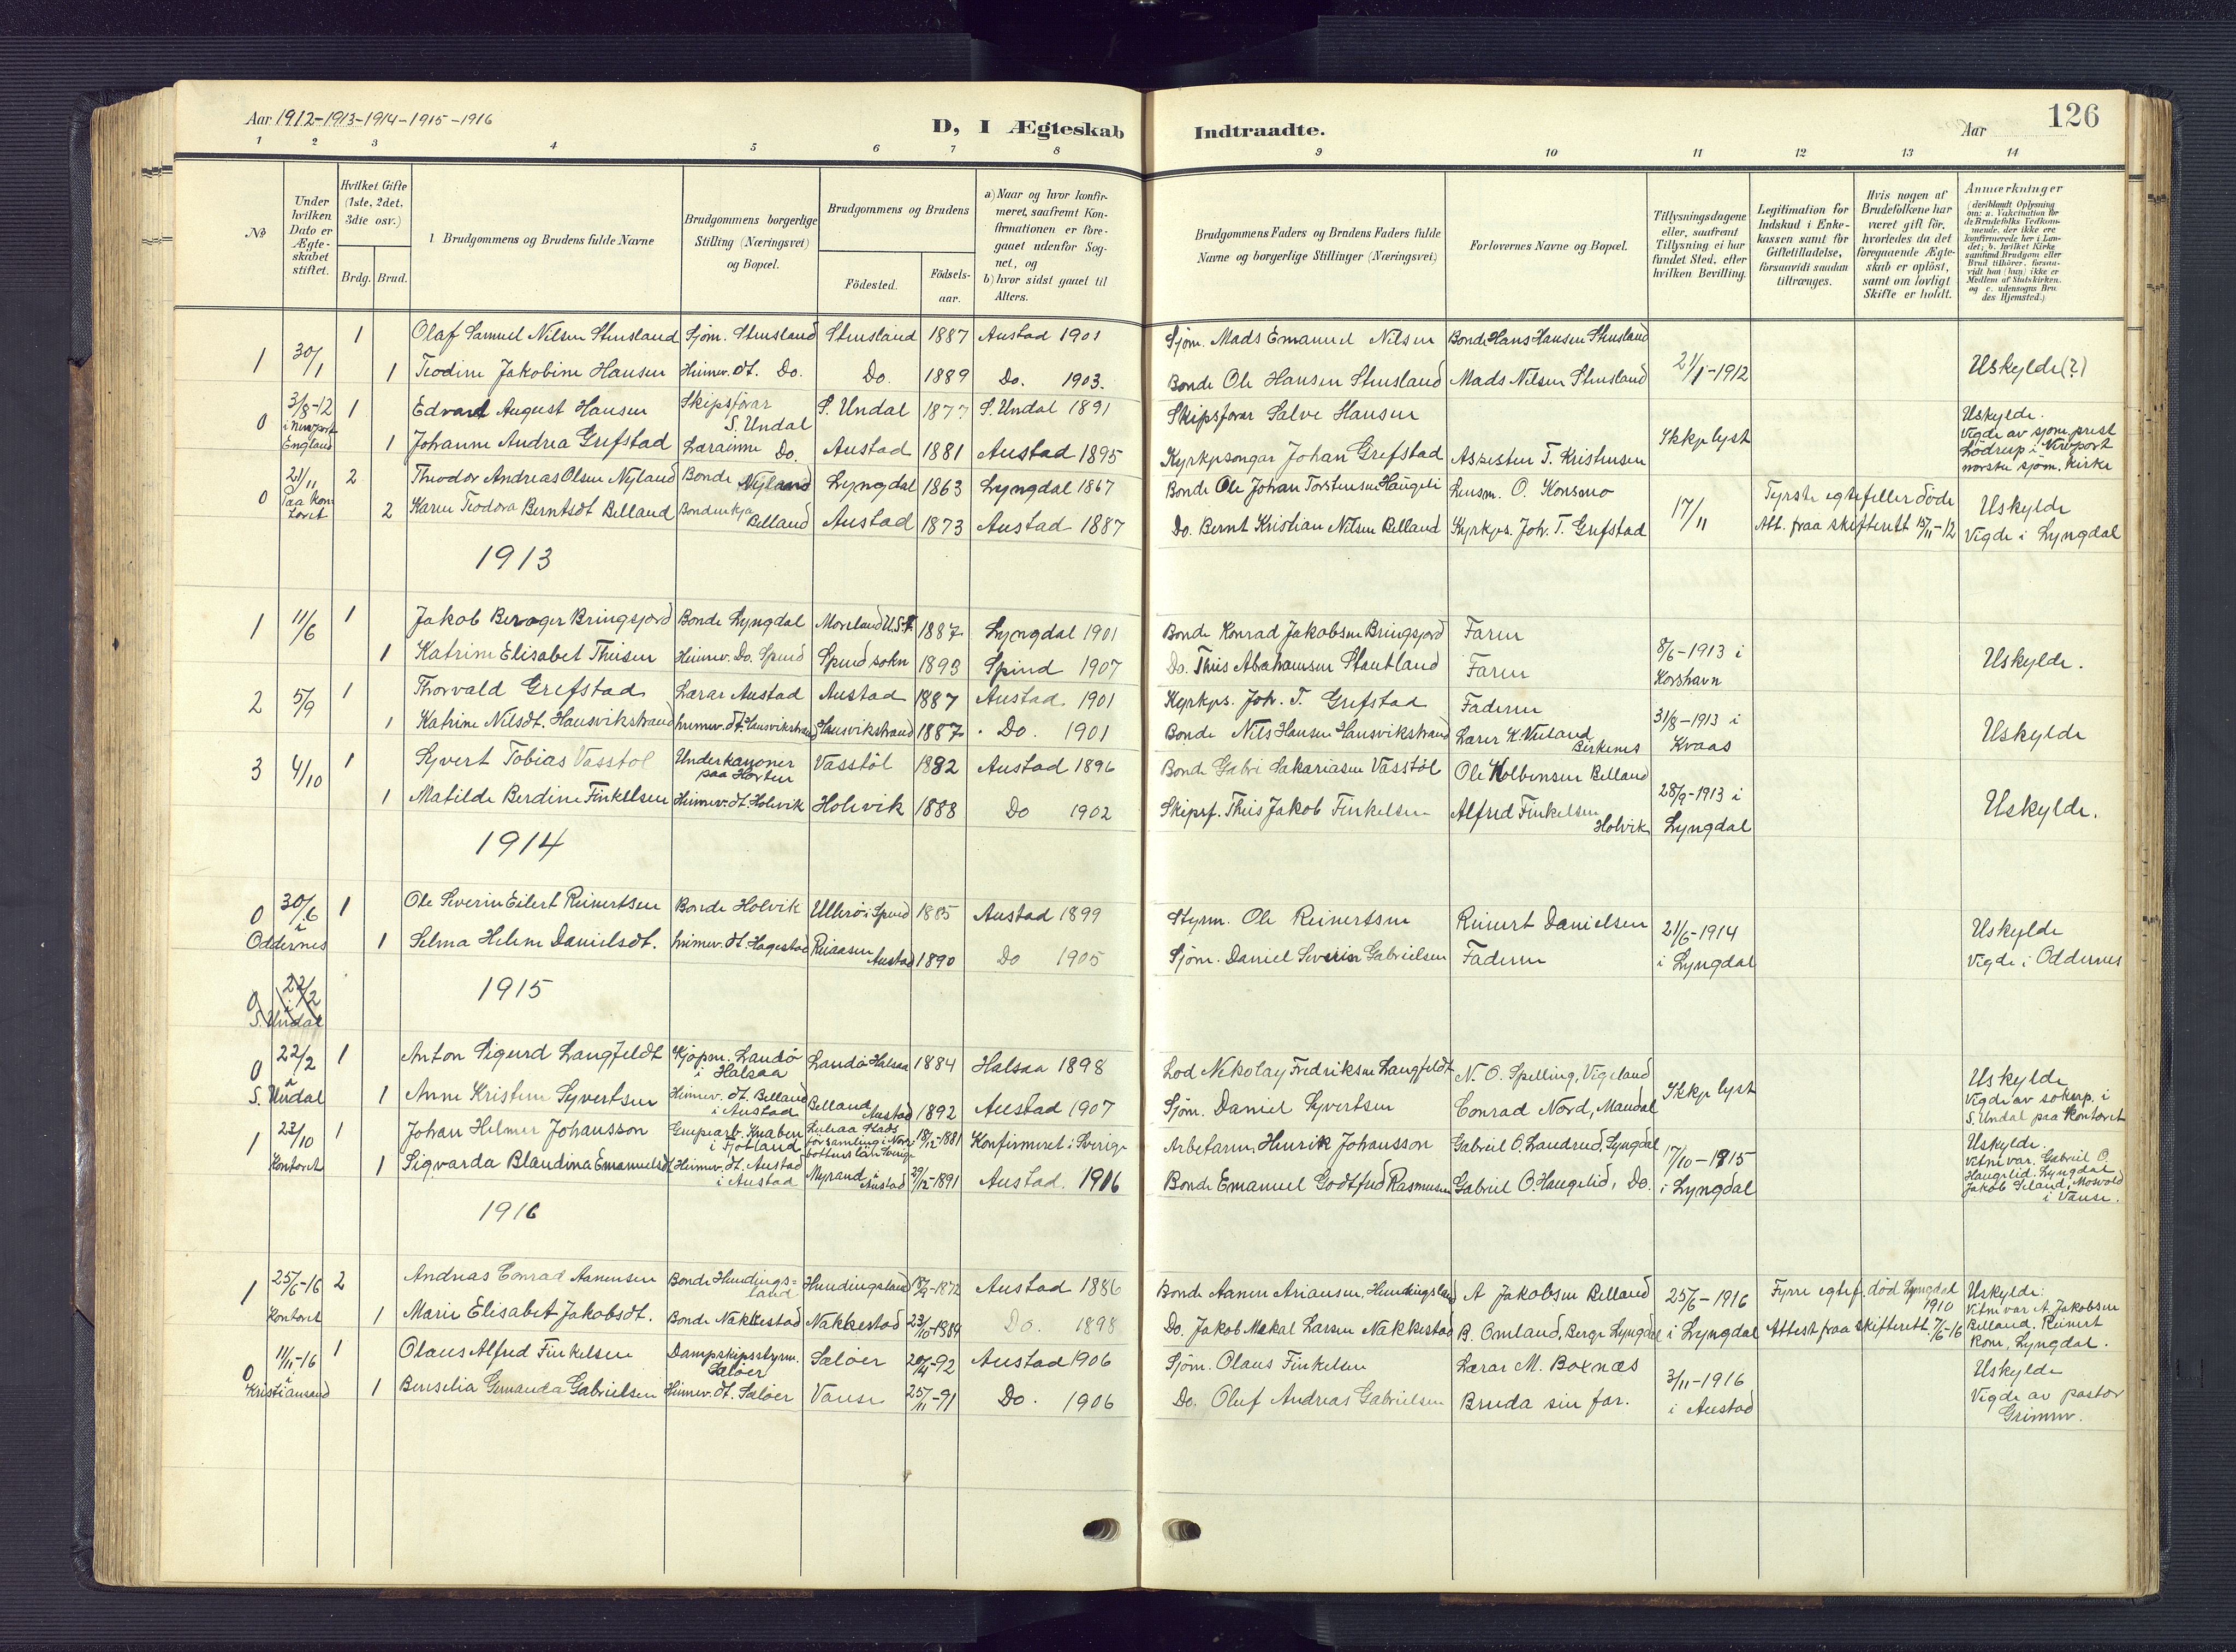 Aar 1912-1913-1914-1915-1916
D, I Ægteskab Indtraadte.
Aar
126
1 2 3 4 5 6 7 8 9 10 11 12 13 14
No
Under hvilken Dato er Ægteskabet stiftet.
Hvilket Gifte (1ste, 2det, 3die osv.)
Brdg. Brud.
Brudgommens og Brudens fulde Navne
Brudgommens borgerlige Stilling (Næringsvei) og Bopæl.
Brudgommens og Brudens
Födested.
Födsels-aar.
a) Naar og hvor konfirmeret, saafremt Konfirmationen er foregaaet udenfor Sognet, og
b) hvor sidst gaaet til Alters.
Brudgommens Faders og Brudens Faders fulde Navne og borgerlige Stillinger (Næringsvei)
Forlovernes Navne og Bopæl.
Tillysningsdagene eller, saafremt Tillysning ei har fundet Sted, efter hvilken Bevilling.
Legitimation for Indskud i Enkekassen samt for Giftetilladelse, forsaavidt saadan tiltrænges.
Hvis nogen af Brudefolkene har været gift før, hvorledes da det foregaaende Ægteskab er oplöst, samt om lovligt Skifte er holdt.
Anmærkninger (deriblandt Oplysning om: a. Vakcination for de Brudefolks Vedkommende, der ikke ere konfirmerede her i Landet; b. hvilket Kirkesamfund Brudgom eller Brud tilhörer, forsaavidt han (hun) ikke er Medlem af Statskirken, og c. udensogns Brudes Hjemsted.)
1 30/1 1 Olaf Samuel Nilsen Stensland Sjøm. Stensland Stensland 1887 Austad 1901 Sjøm. Mads Emanuel Nilsen Bonde Hans Hansen Stensland 21/1-1912 Uskylde(?)
1 Teodine Jakobine Hansen Heimev. dt. Do. Do. 1889 Do. 1903. Bonde Ole Hansen Stensland Mads Nilsen Stensland
0 3/8-12 i Newport England 1 Edvard August Hansen Skipsförar S. Undal S. Undal 1877 S. Undal 1891 Skipsförar Salve Hansen Ikkje lyst Uskylde. Vigde av sjøm. prest Lødrup i Newport norske sjøm. kirke
1 Johanne Andrea Grefstad Lærarinne Do. Austad 1881 Austad 1895 Kyrkjesongar Johan Grefstad T. Kristensen
0 21/11 2 Theodor Andreas Olsen Nyland Bonde Nyland Lyngdal 1863 Lyngdal 1867 Bonde Ole Johan Torstensen Haugeli Lensm. O. Konsmo 17/11 Fyrste egtefeller døde Uskylde
2 Karen Teodora Berntsdt Belland Bondeenkja Belland Austad 1873 Austad 1887 Do. Bernt Kristian Nilsen Belland Kyrkjes. Joh. T. Grefstad Att. fraa skifterett 15/11-12 Vigde i Lyngdal
1913
1 11/6 1 Jakob Berager Bringsjord Bonde Lyngdal Moreland U.S.A. 1887 Lyngdal 1901 Bonde Konrad Jakobsen Bringsjord Faren 8/6-1913 i Korshavn Uskylde.
1 Katrine Elisabet Theisen Heimev. Do. Spind Spind sokn 1893 Spind 1907 Do. Theis Abrahamsen Stautland Faren
2 5/9 1 Thorvald Grefstad Lærar Austad Austad 1887 Austad 1901 Kyrkjes. Joh. T. Grefstad Faderen 31/8-1913 i Kvaas Uskylde
1 Katrine Nilsdt. Hausvikstrand heimev. dt. Hausvikstrand Hausvikstrand 1887 Do. 1901 Bonde Nils Hansen Hausvikstrand Lærer K. Birkenes
3 4/10 1 Syvert Tobias Vasstöl Underkanoner paa Horten Vasstöl 1882 Austad 1896 Bonde Gabri Sakariasen Vasstöl Ole Kolbensen Belland 28/9-1913 i Lyngdal Uskylde.
1 Matilde Berdine Finkelsen Heimev. dt. Holevik Holevik 1888 Do 1902 Skipsf. Theis Jakob Finkelsen Alfred Finkelsen Holvik
1914
0 30/6 i Oddernes 1 Ole Severin Eilert Reinertsen Bonde Holvik Ullerö i Spind 1885 Austad 1899 Styrm. Ole Reinertsen Reinert Danielsen 21/6-1914 i Lyngdal Uskylde
1 Selma Helene Danielsdt. heimev. dt. Hagestad Reiaasen Austad 1890 Do 1905 Sjøm. Daniel Severin Gabrielsen Faderen Vigde i Oddernes
0 22/2 i S. Undal
1915
0 22/2 i S. Undal 1 Anton Sigurd Langfeldt Kjøpm. Landö i Halsaa Landö Halsaa 1884 Halsaa 1898 Lod Nekolay Fredriksen Langfeldt N. O. Spilling, Vigeland Ikkje lyst Uskylde Vigde av soknp. i S. Undal paa Kontoret
1 Anne Kristine Syvertsen Heimev. dt. Belland i Austad Belland Austad 1892 Austad 1907 Sjøm. Daniel Syvertsen Conrad Nord, Mandal
1 23/10 Kontoret 1 Johan Hilmer Johansson Gruvearb. Knaben i Fjotland Luleaa Stads församling i Norrbottens län Sverige 18/12-1881 Konfirmeret i Sverige Arbetaren Henrik Johansson Gabriel O. Landrud, Lyngdal 17/10-1915 i Lyngdal Uskylde. Vitne var. Gabriel O. Haugelid, Lyngdal Jakob Mosvold i Vanse.
1 Sigvarda Blandina Emanuelsdt Heimev. dt. Austad i Austad Myrand i Austad 29/12-1891 Austad. 1906 Bonde Emanuel Godtfred Rasmussen Gabriel O. Haugelid, Do.
1916
1 25/6-16 Kontoret 2 Andreas Conrad Aanensen Bonde Hundingsland Hundingsland 18/9-1872 Austad 1886 Bonde Aanen Ariansen, Hundingsland A Jakobsen Belland 25/6-1916 i Lyngdal Fyrre egtef. død Lyngdal 1910 Uskylde: Vitne var A. Jakobsen Belland. Reinert Rom, Lyngdal.
1 Marie Elisabet Jakobsdt. Bonde Nakkestad Nakkestad 23/10-1884 Do. 1898 Do. Jakob Mekal Larsen Nakkestad B. Omland, Berge Lyngdal Attest fraa skifterett. 7/6-16
0 11/11-16 i Kristiansand 1 Olaus Alfred Finkelsen Dampskipsstyrm. Saløer Saløer 20/4-92 Austad 1906 Sjøm. Olaus Finkelsen Lærar M. Boxnæs 3/11-1916 i Austad Uskylde Vigde av pastor Grimm.
1 Benselia Gernanda Gabrielsen Heimev. dt. Saløer Vanse 25/11-91 Do. 1906 Do. Oluf Andreas Gabrielsen Bruda sin far.